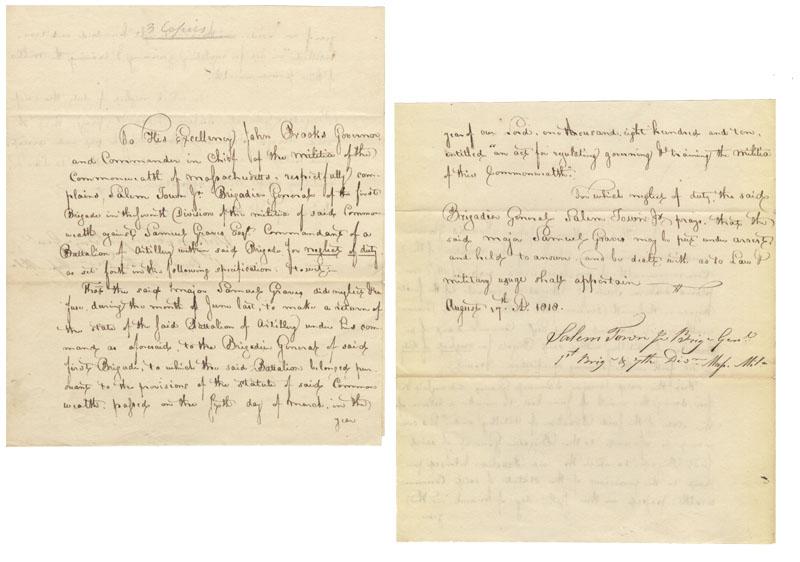 3 Copies
To His Excellency John Brooks Governor
and Commander in Chief of the Militia of the
Commonwealth of Massachusetts, respectfully com-
plains Salem Town Jr Brigadier General of the first
Brigade in the seventh Division of the militia of said Common
wealth against Samuel Graves Esqr Commandant of a
Battalion of Artillery within said Brigade for neglect of duty
as set forth in the following specification. To wit
That the said Major Samuel Graves did neglect &
fuse, during the month of June last, to make a return of
the state of the said Battalion of Artillery under his com
mand as aforesaid, to the Brigadier General of said
first Brigade, to which the said Battalion belonged pur
suant to the provisions of the statute of said Common
wealth, passed on the sixth day of March, in the
year
year of our Lord, one thousand, eight hundred and ten,
entitled "an act for regulating governing & training the Militia
of this Commonwealth."
For which neglect of duty, the said
Brigadier General Salem Town Jr, prays, that the
said major Samuel Graves may be put under arrest
and held to answer, and be dealt with as to Law &
military usage shall appertain
August 17th AD. 1818.
Salem Town Jr Brigr Genl
1st Brig & 7th Divn Mass. Mila